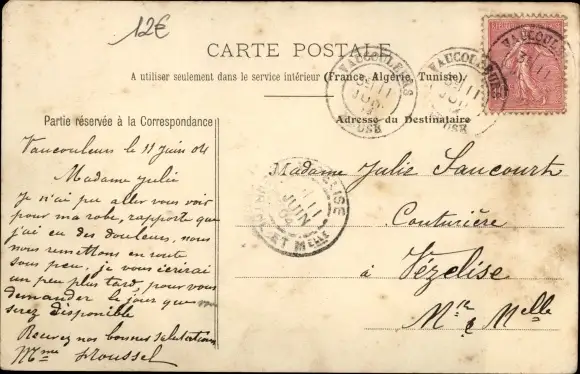 12€
CARTE POSTALE
A utiliser seulement dans le service intérieur (France, Algérie, Tunisie)
Partie réservée à la Correspondance
Adresse du Destinataire
Vaucouleurs le 11 juin 04
Madame Julie
Je n'ai pu aller vous voir
pour ma robe, rapport que
j'ai eu des douleurs, nous
nous remettons en route
sous peu, je vous écrirai
un peu plus tard, pour vous
demander le jour que vous
serez disponible
Recevez nos bonnes salutations
Mme Houssel
Madame Julie Saucourt
Couturière
à Vézelise
Mthe & Melle
VAUCOULEURS
11
JUIN
MEUSE
VAUCOULEURS
11
JUIN
MEUSE
VAUCOULEURS
11
VEZELISE
11
JUIN
04
MEURTHE ET MELLE